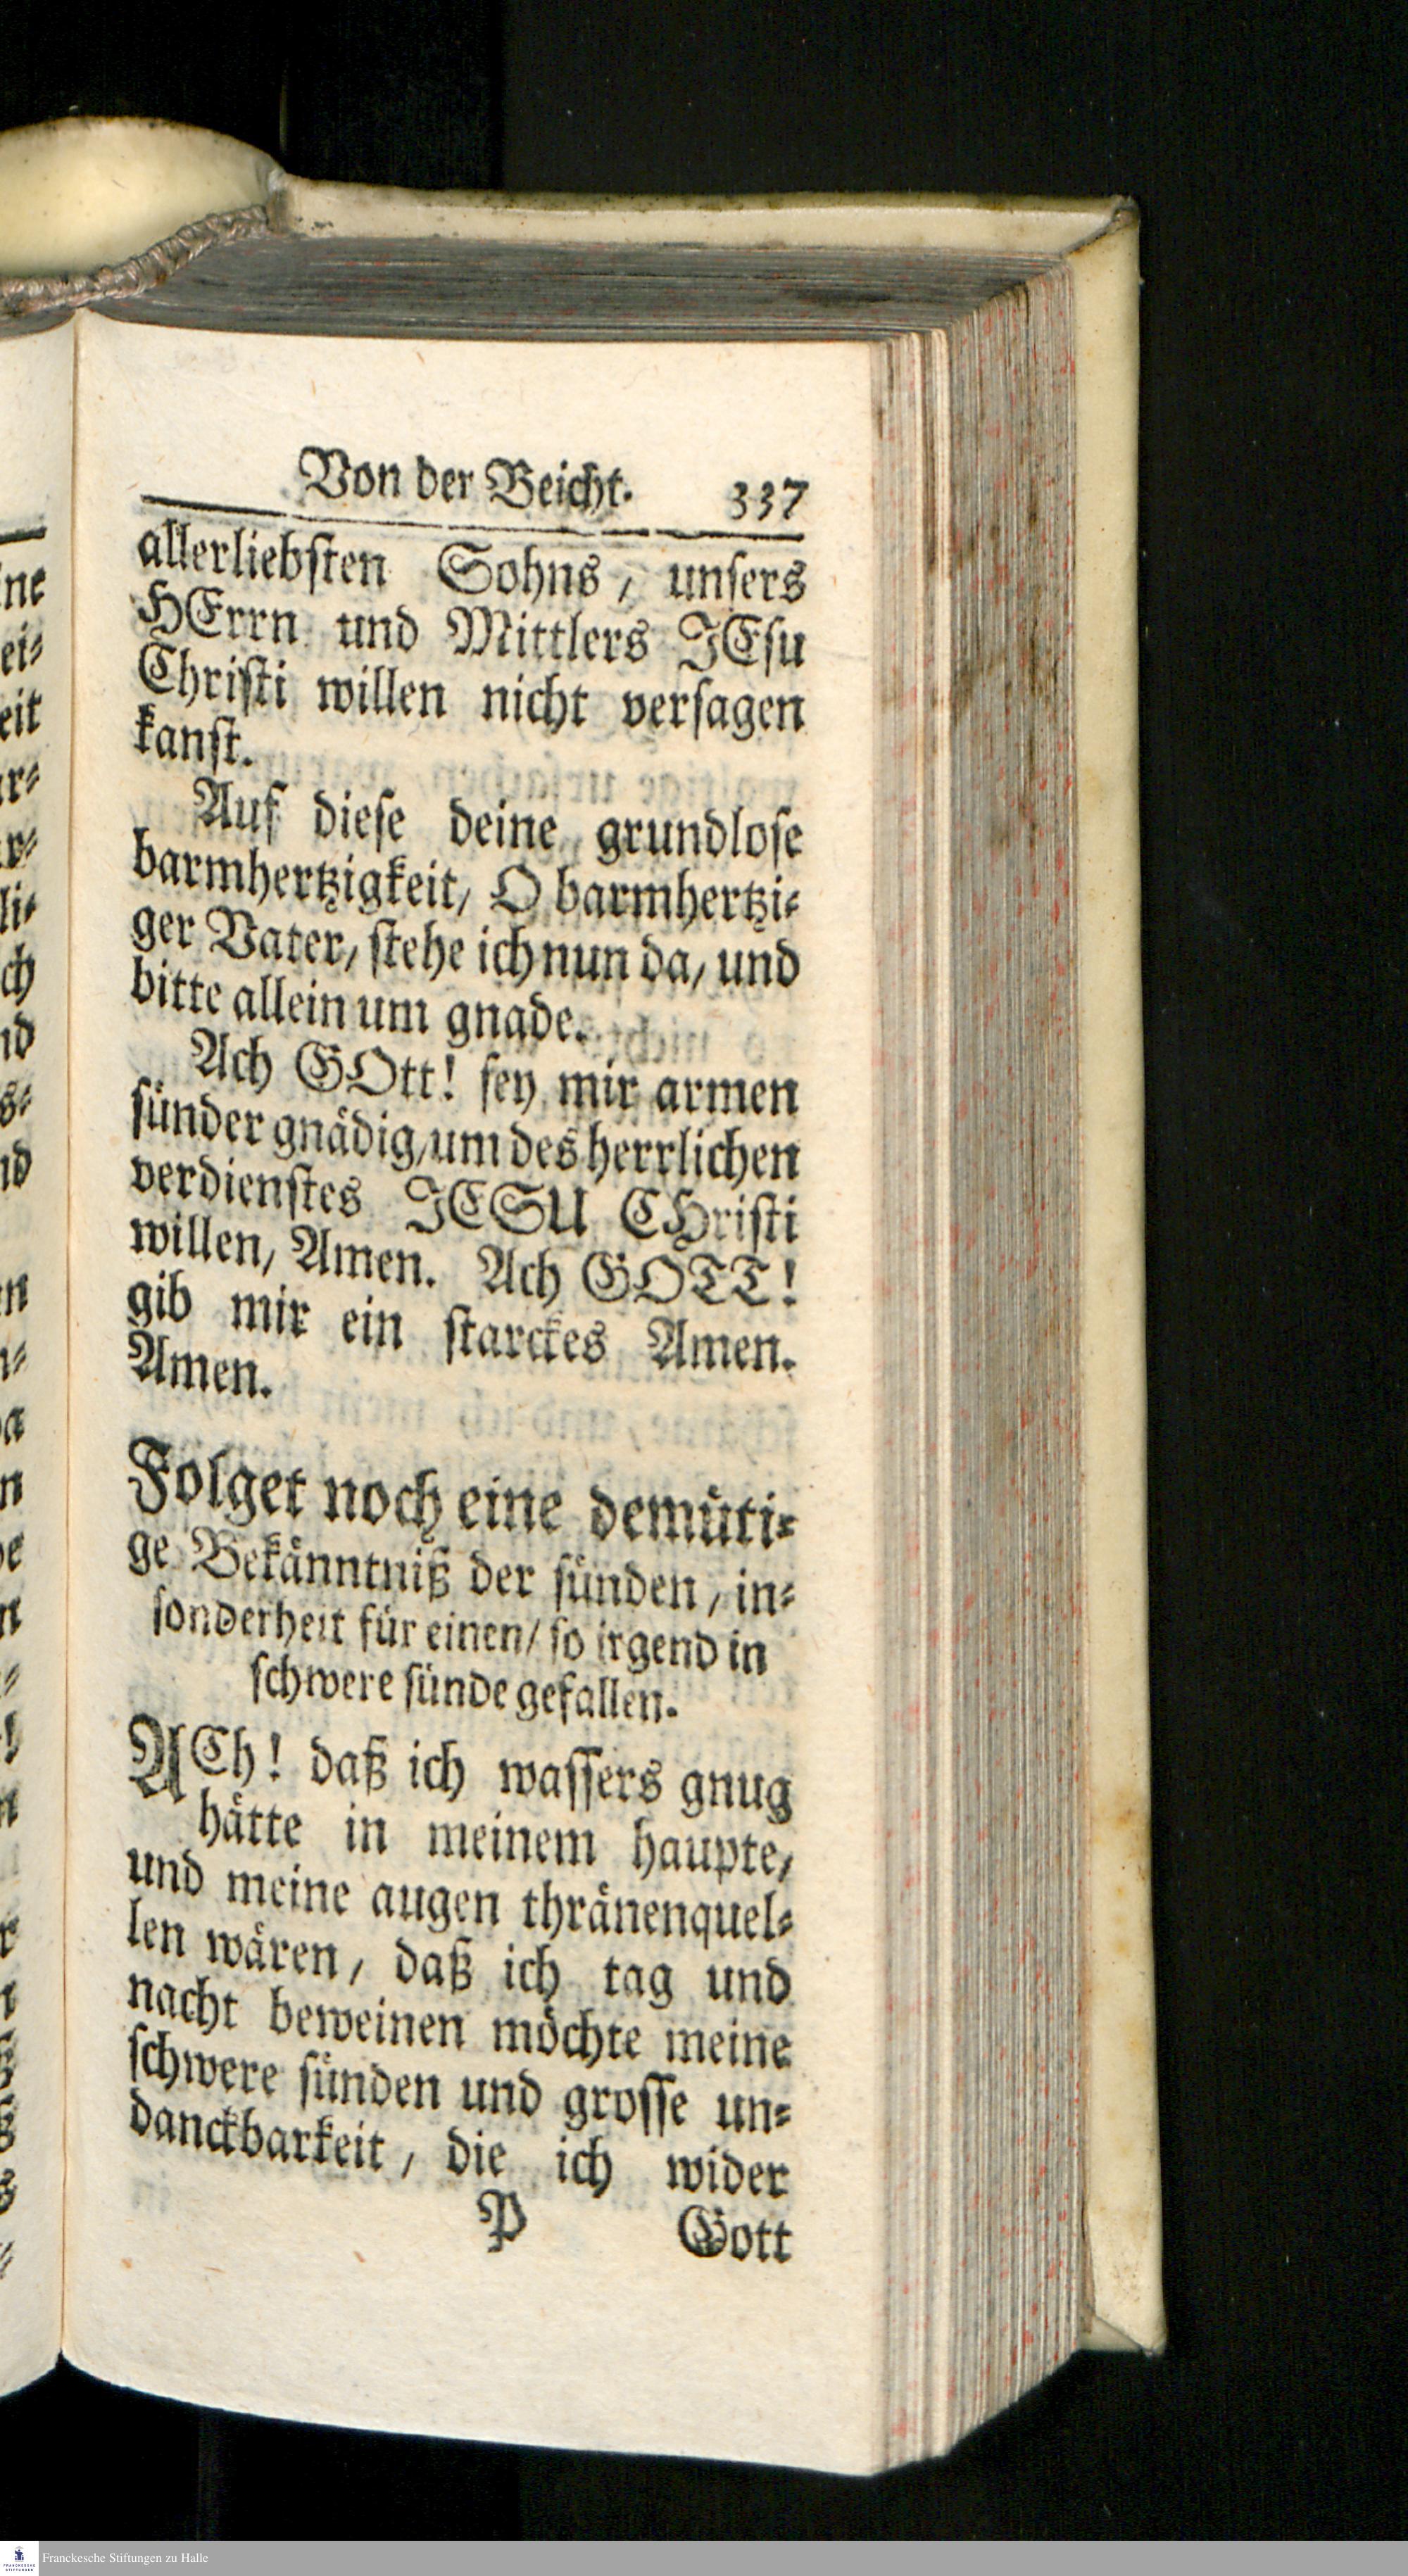 Von der Beicht. 337
allerliebsten Sohns, unsers
HErrn und Mittlers JEsu
Christi willen nicht versagen
kanst.
Auf diese deine grundlose
barmhertzigkeit, O barmhertzi-
ger Vater, stehe ich nun da, und
bitte allein um gnade.
Ach GOtt! sey mir armen
sünder gnädig, um des herrlichen
verdienstes JESU CHristi
willen, Amen. Ach GOTT!
gib mir ein starckes Amen.
Amen.
Folget noch eine demüti-
ge Bekänntniß der sünden, in-
sonderheit für einen/ so irgend in
schwere sünde gefallen.
ACh! daß ich wassers gnug
hätte in meinem haupte,
und meine augen thränenquel-
len wären, daß ich tag und
nacht beweinen möchte meine
schwere sünden und grosse un-
danckbarkeit, die ich wider
P Gott
Franckesche Stiftungen zu Halle